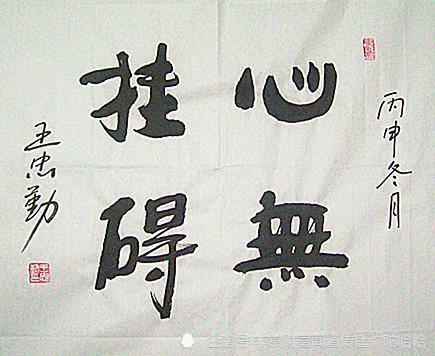 丙申冬月
心無
挂碍
王忠勤